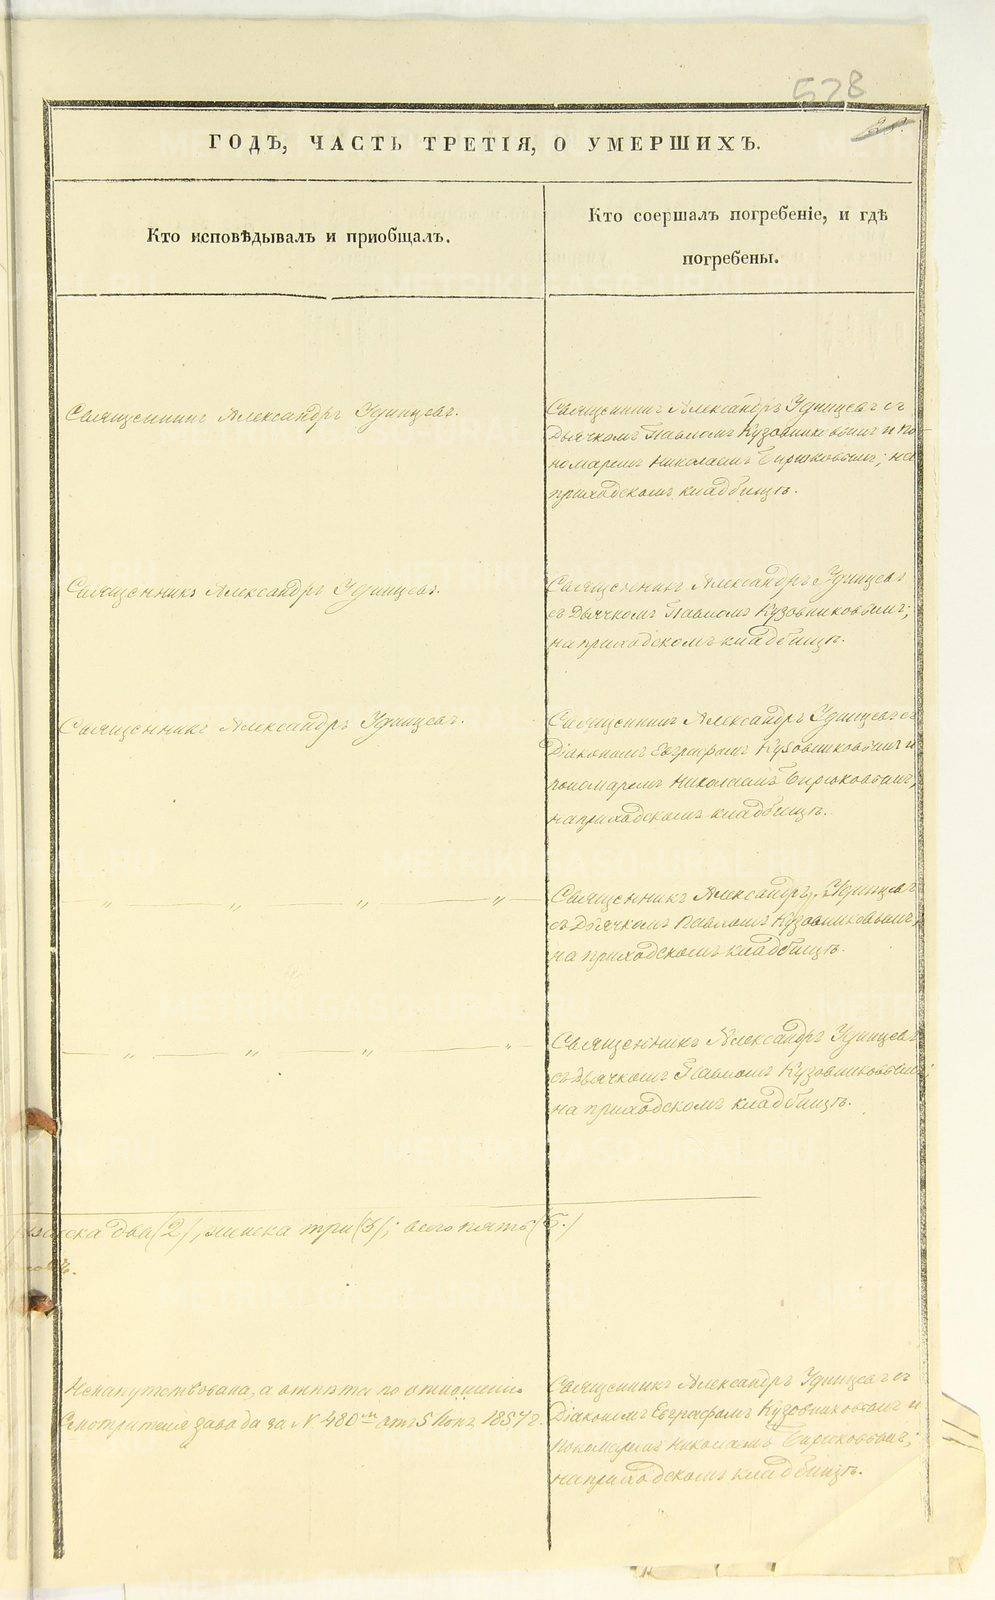 528
ГОДЪ, ЧАСТЬ ТРЕТІЯ, О УМЕРШИХЪ.
Кто исповѣдывалъ и приобщалъ.
Кто соершалъ погребеніе, и гдѣ
погребены.
Священникъ Александръ Удинцевъ.
Священникъ Александръ Удинцевъ съ
Дьячкомъ Павломъ Кузовниковымъ и по-
номаремъ Николаемъ Бирюковымъ; на
приходскомъ кладбищѣ.
Священникъ Александръ Удинцевъ.
Священникъ Александръ Удинцевъ
съ Дьячкомъ Павломъ Кузовниковымъ;
на приходскомъ кладбищѣ.
Священникъ Александръ Удинцевъ.
Священникъ Александръ Удинцевъ съ
Діакономъ Евграфомъ Кузовниковымъ и
пономаремъ Николаемъ Бирюковымъ;
на приходскомъ кладбищѣ.
„ — „ — „ — „ —
Священникъ Александръ Удинцевъ
съ Дьячкомъ Павломъ Кузовниковымъ;
на приходскомъ кладбищѣ.
— „ — „ — „ — „ —
Священникъ Александръ Удинцевъ
съ Дьячкомъ Павломъ Кузовниковымъ;
на приходскомъ кладбищѣ.
два (2), женска три (3); всего пять (5.)
Ненапутствована, а отпѣта по отношенію
Смотрителя завода за № 480 отъ 5 Іюня 1857 г.
Священникъ Александръ Удинцевъ съ
Діакономъ Евграфомъ Кузовниковымъ и
Пономаремъ Николаемъ Бирюковымъ;
на приходскомъ кладбищѣ.
METRIKI.GASO-URAL.RU